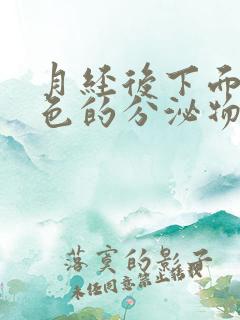 月经後下面
色的分泌物
落寞的影子
未经同意禁止转载